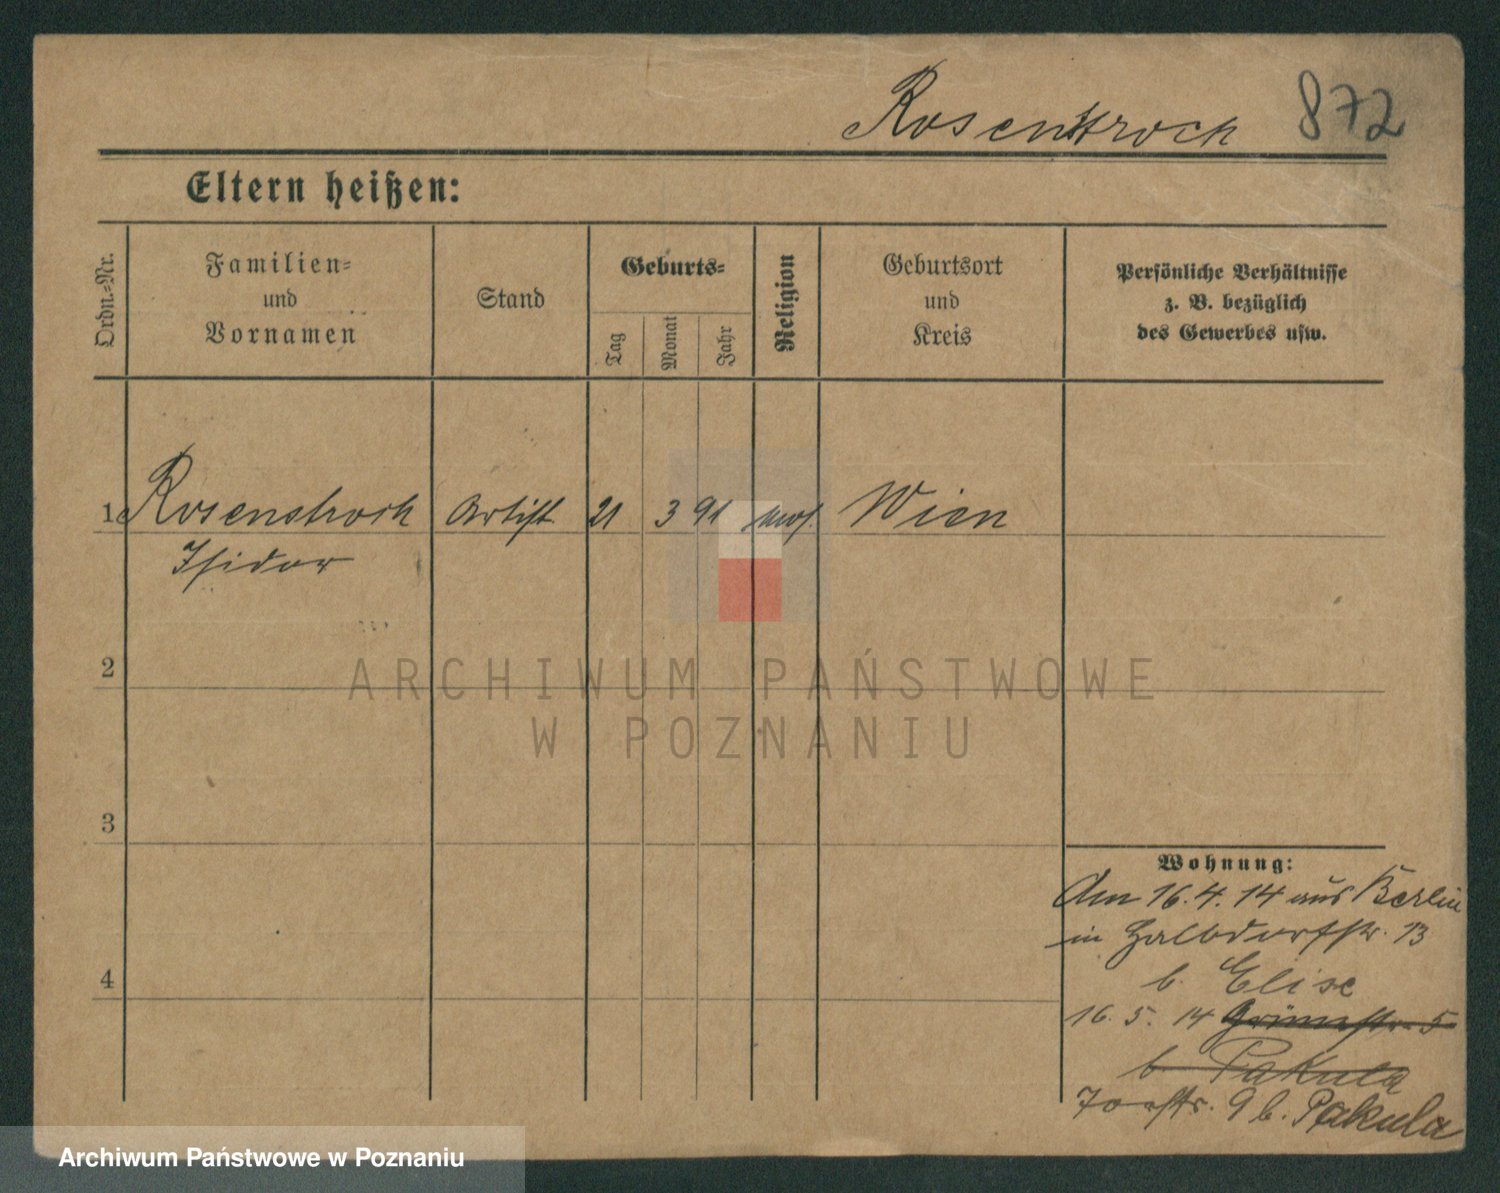 Rosenstroch 872
Eltern heißen:
Ordn.-Nr.
Familien-
und
Vornamen
Stand
Geburts-
Tag
Monat
Jahr
Religion
Geburtsort
und
Kreis
Persönliche Verhältnisse
z. B. bezüglich
des Gewerbes usw.
1 Rosenstroch Artist 21 3 91 mos. Wien
Isidor
2
3
4
ARCHIWUM PAŃSTWOWE
W POZNANIU
Wohnung:
Am 16.4.14 aus Berlin
in Halbdorfstr. 13
b. Elise
16.5.14 Grünestr. 5
b. Pakula
Torstr. 9 b. Pakula
Archiwum Państwowe w Poznaniu